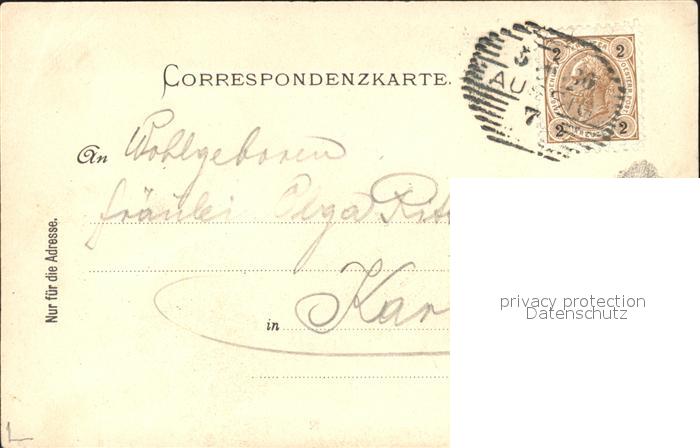 CORRESPONDENZKARTE.
3
AUS
7
2 2
2 2
An Wohlgeboren
Fräulei Olga Rit
in Kar
Nur für die Adresse.
privacy protection
Datenschutz